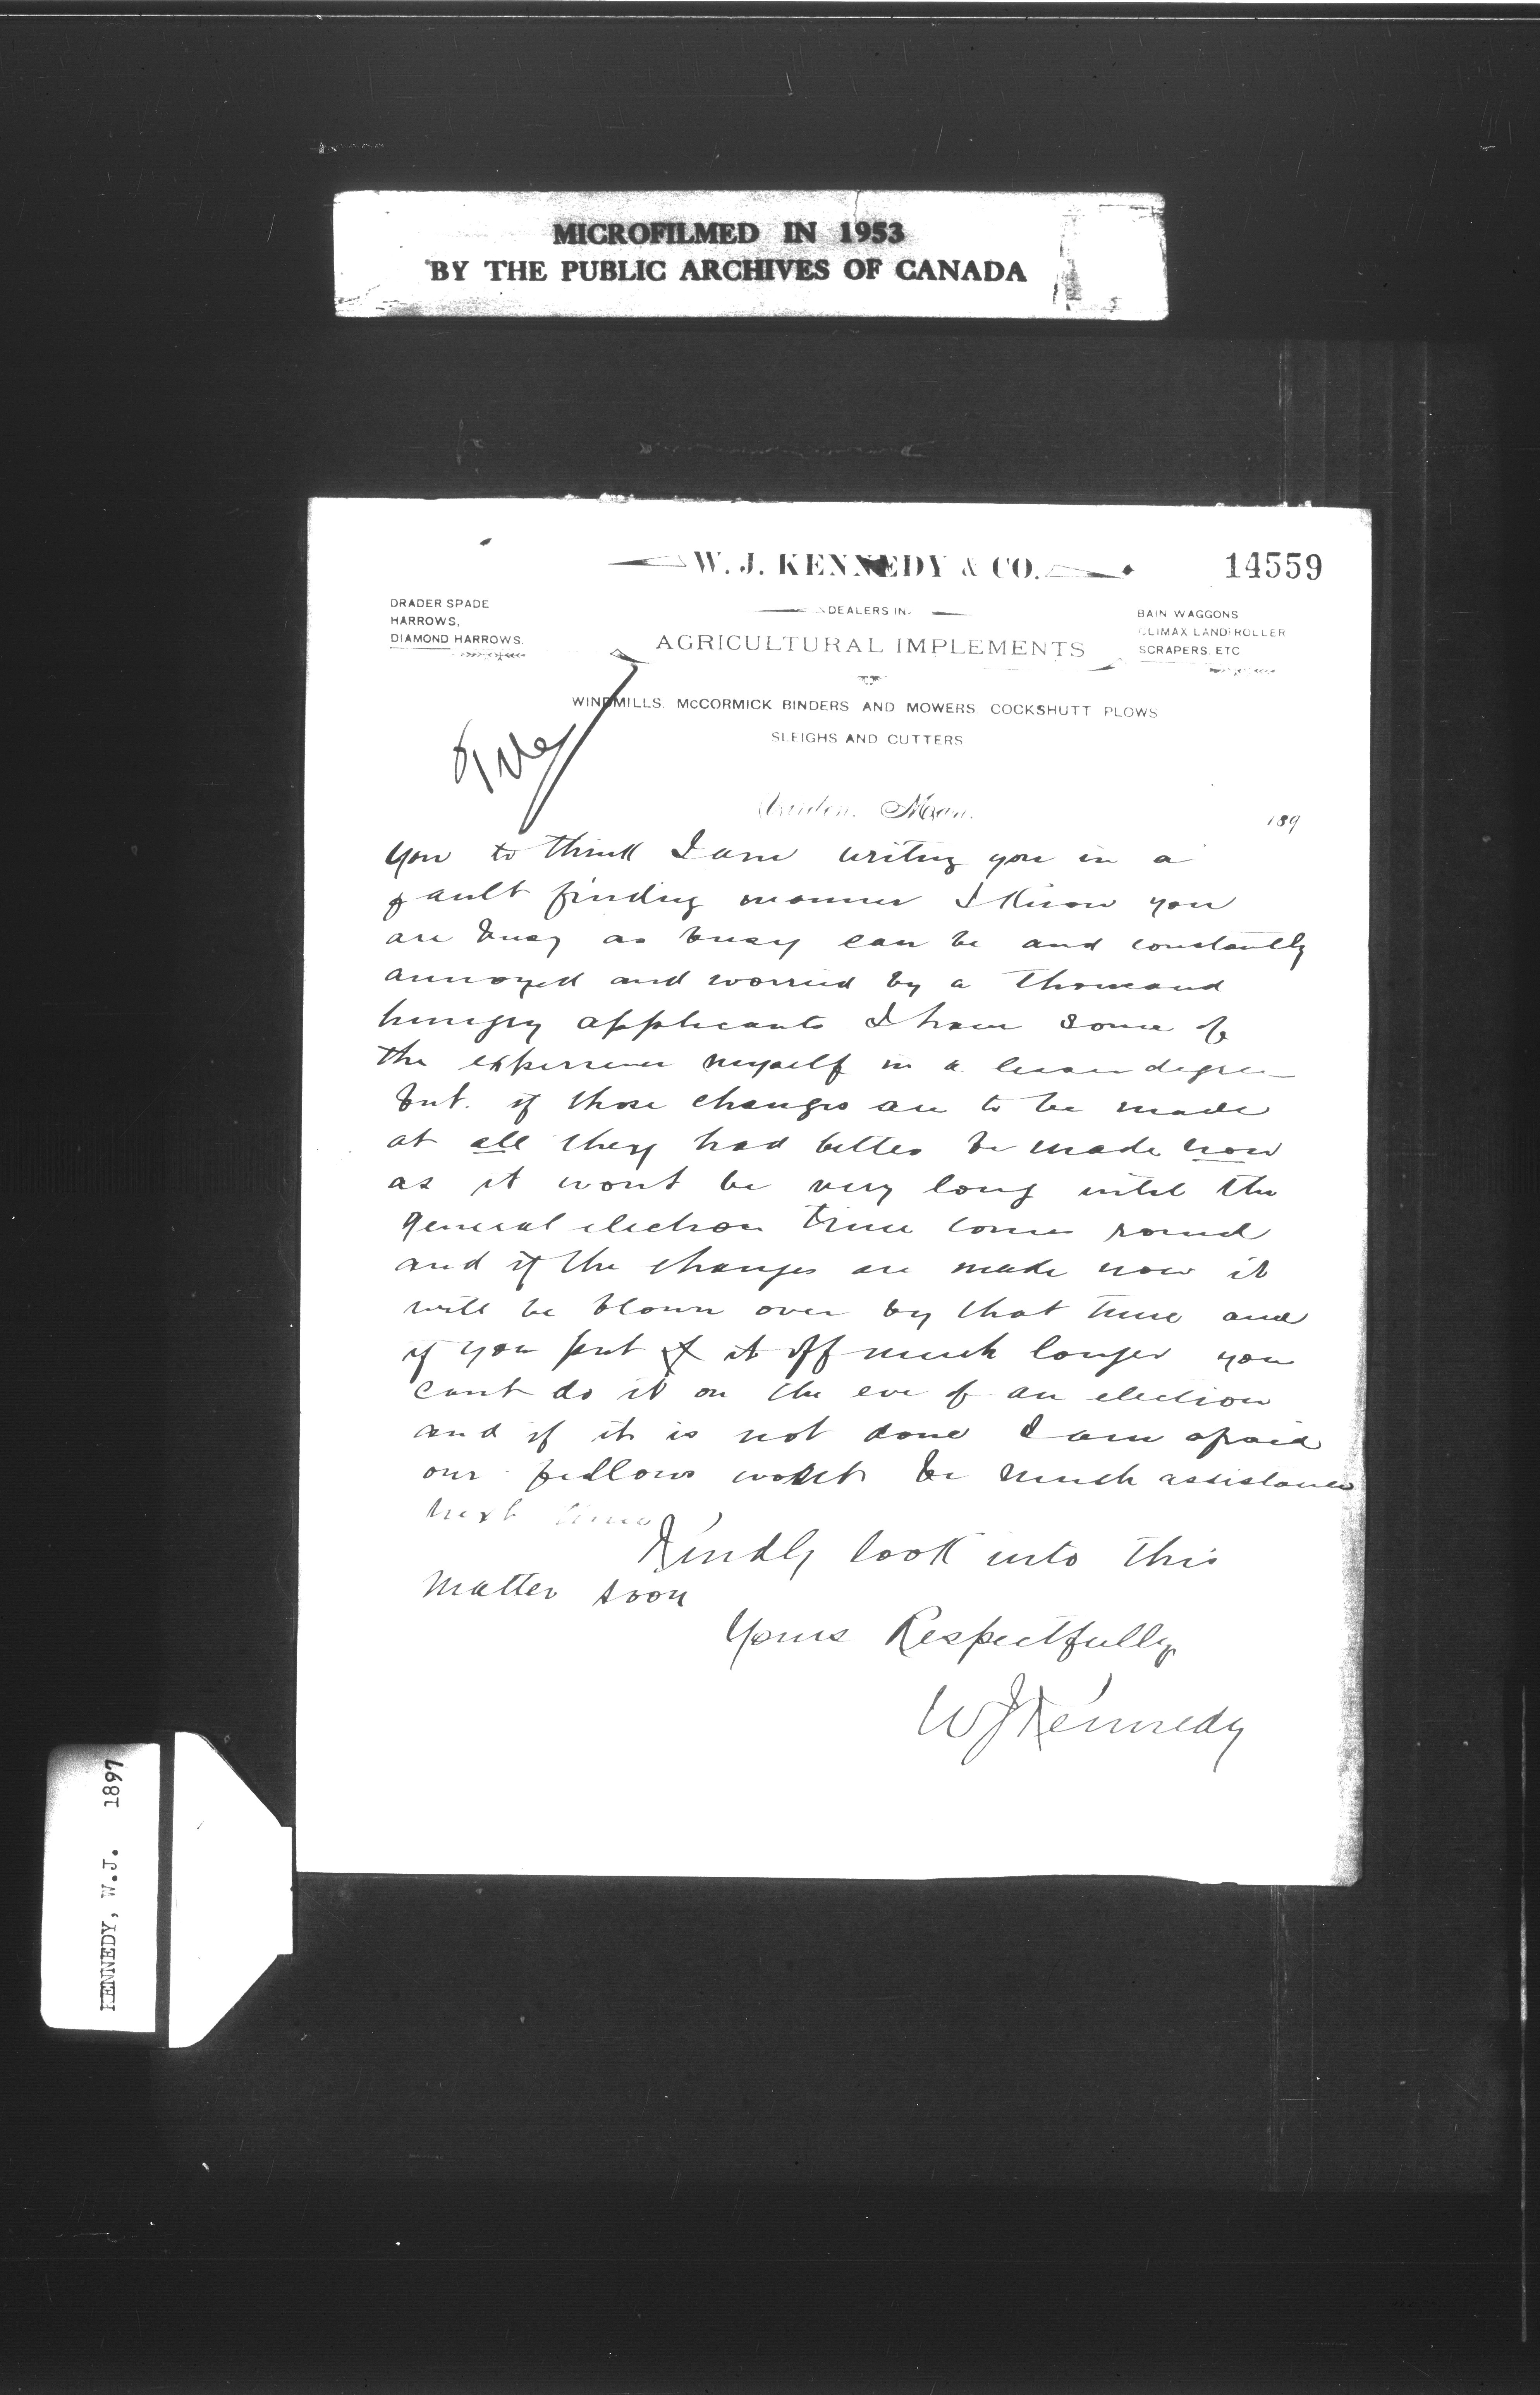 MICROFILMED IN 1953
BY THE PUBLIC ARCHIVES OF CANADA
W. J. KENNEDY & CO.
14559
DEALERS IN
AGRICULTURAL IMPLEMENTS
DRADER SPADE
HARROWS,
DIAMOND HARROWS.
BAIN WAGGONS
CLIMAX LAND ROLLER
SCRAPERS, ETC
WINDMILLS. McCORMICK BINDERS AND MOWERS. COCKSHUTT PLOWS
SLEIGHS AND CUTTERS
Man. 189
you to think I am writing you in a
fault finding manner I know you
are busy as busy can be and constantly
annoyed and worried by a thousand
hungry applicants I have some of
the experience myself in a lesser degree
but. if those changes are to be made
at all they had better be made now
as it wont be very long until the
general election time comes round
and if the changes are made now it
will be blown over by that time and
if you put it off much longer you
cant do it on the eve of an election
and if it is not done I am afraid
our fellows wont be much assistance
next time
Kindly look into this
matter soon
Yours Respectfully
WJ Kennedy
KENNEDY, W.J. 1897